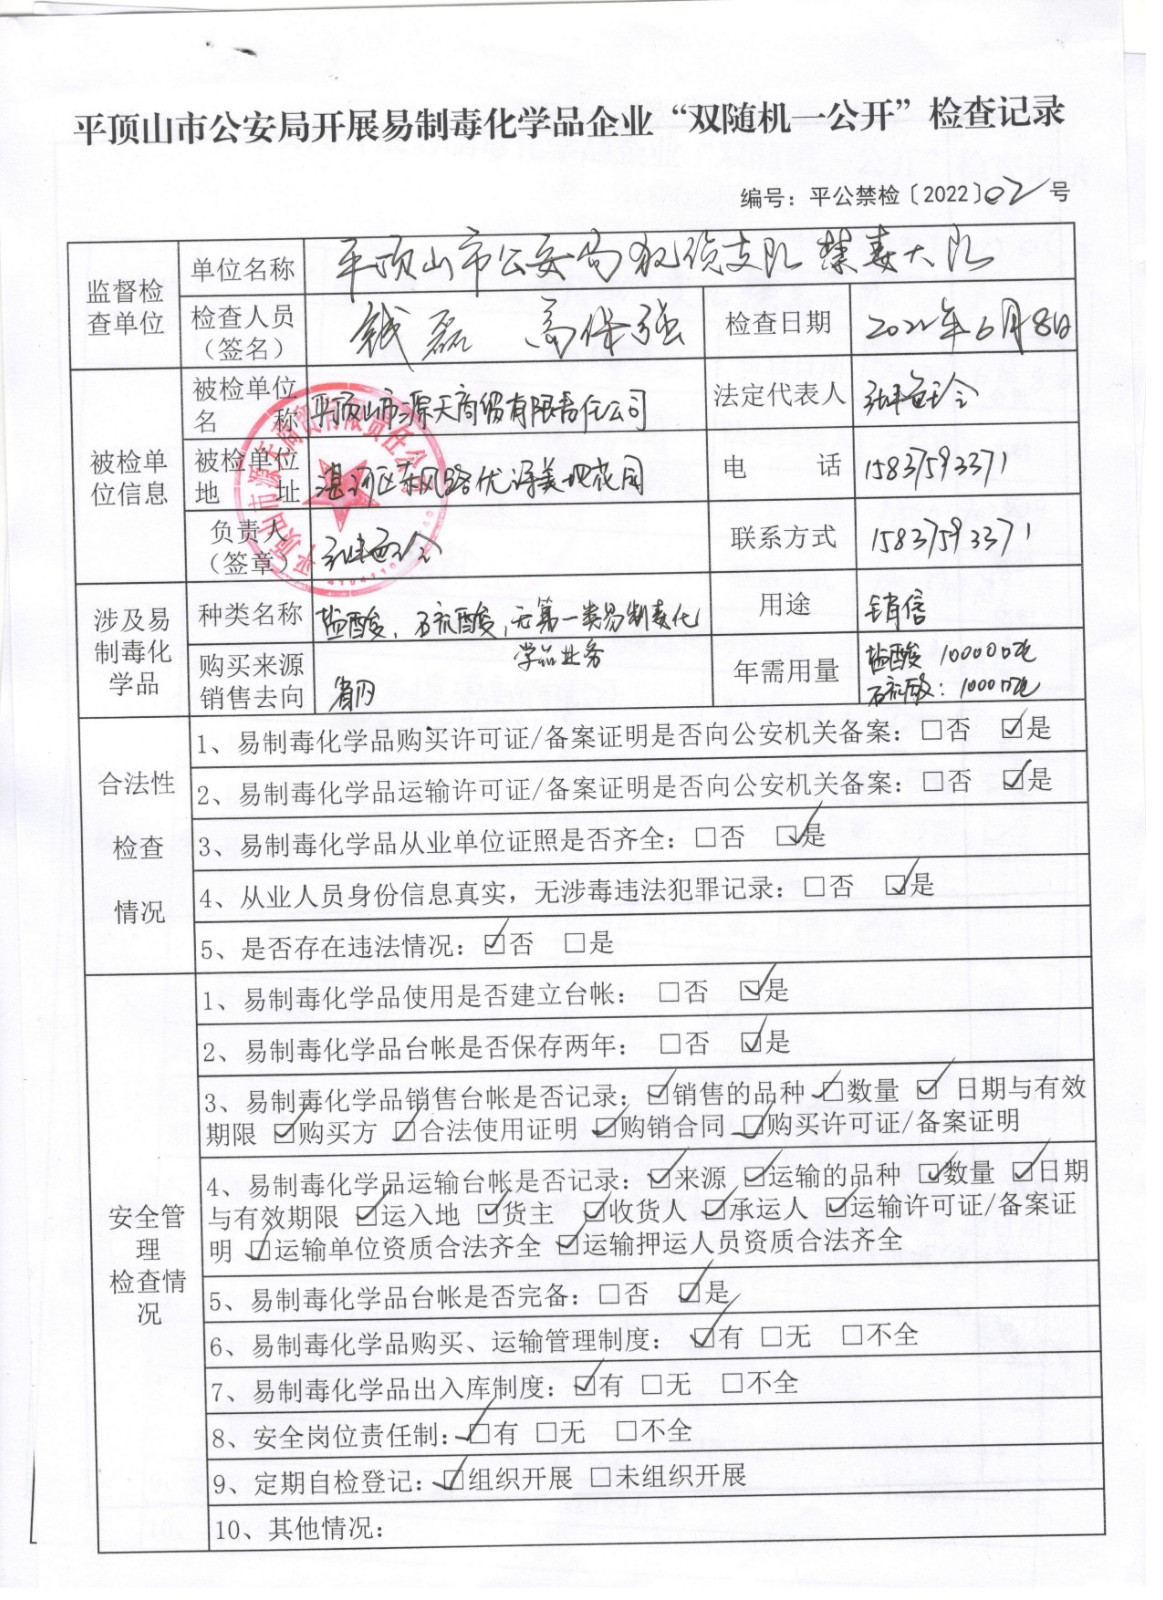 平顶山市公安局开展易制毒化学品企业“双随机一公开”检查记录
编号：平公禁检〔2022〕02号
监督检查单位
单位名称
平顶山市公安局 支队禁毒大队
检查人员（签名）
钱磊 高伟强
检查日期
2022年6月8日
被检单位信息
被检单位名称
平顶山市源天商贸有限责任公司
法定代表人
被检单位地址
湛河区东风路优诗美地花园
电话
15837593371
负责人（签章）
联系方式
15837593371
涉及易制毒化学品
种类名称
盐酸、硫酸，无第一类易制毒化
学品业务
用途
销售
购买来源销售去向
省内
年需用量
盐酸 10000吨
硫酸：1000吨
合法性检查情况
1、易制毒化学品购买许可证/备案证明是否向公安机关备案：□否 ☑是
2、易制毒化学品运输许可证/备案证明是否向公安机关备案：□否 ☑是
3、易制毒化学品从业单位证照是否齐全：□否 ☑是
4、从业人员身份信息真实，无涉毒违法犯罪记录：□否 ☑是
5、是否存在违法情况：☑否 □是
安全管理检查情况
1、易制毒化学品使用是否建立台帐：□否 ☑是
2、易制毒化学品台帐是否保存两年：□否 ☑是
3、易制毒化学品销售台帐是否记录：☑销售的品种 ☑数量 ☑ 日期与有效
期限 ☑购买方 ☑合法使用证明 ☑购销合同 ☑购买许可证/备案证明
4、易制毒化学品运输台帐是否记录：☑来源 ☑运输的品种 ☑数量 ☑日期
与有效期限 ☑运入地 ☑货主 ☑收货人 ☑承运人 ☑运输许可证/备案证
明 ☑运输单位资质合法齐全 ☑运输押运人员资质合法齐全
5、易制毒化学品台帐是否完备：□否 ☑是
6、易制毒化学品购买、运输管理制度：☑有 □无 □不全
7、易制毒化学品出入库制度：☑有 □无 □不全
8、安全岗位责任制：☑有 □无 □不全
9、定期自检登记：☑组织开展 □未组织开展
10、其他情况：